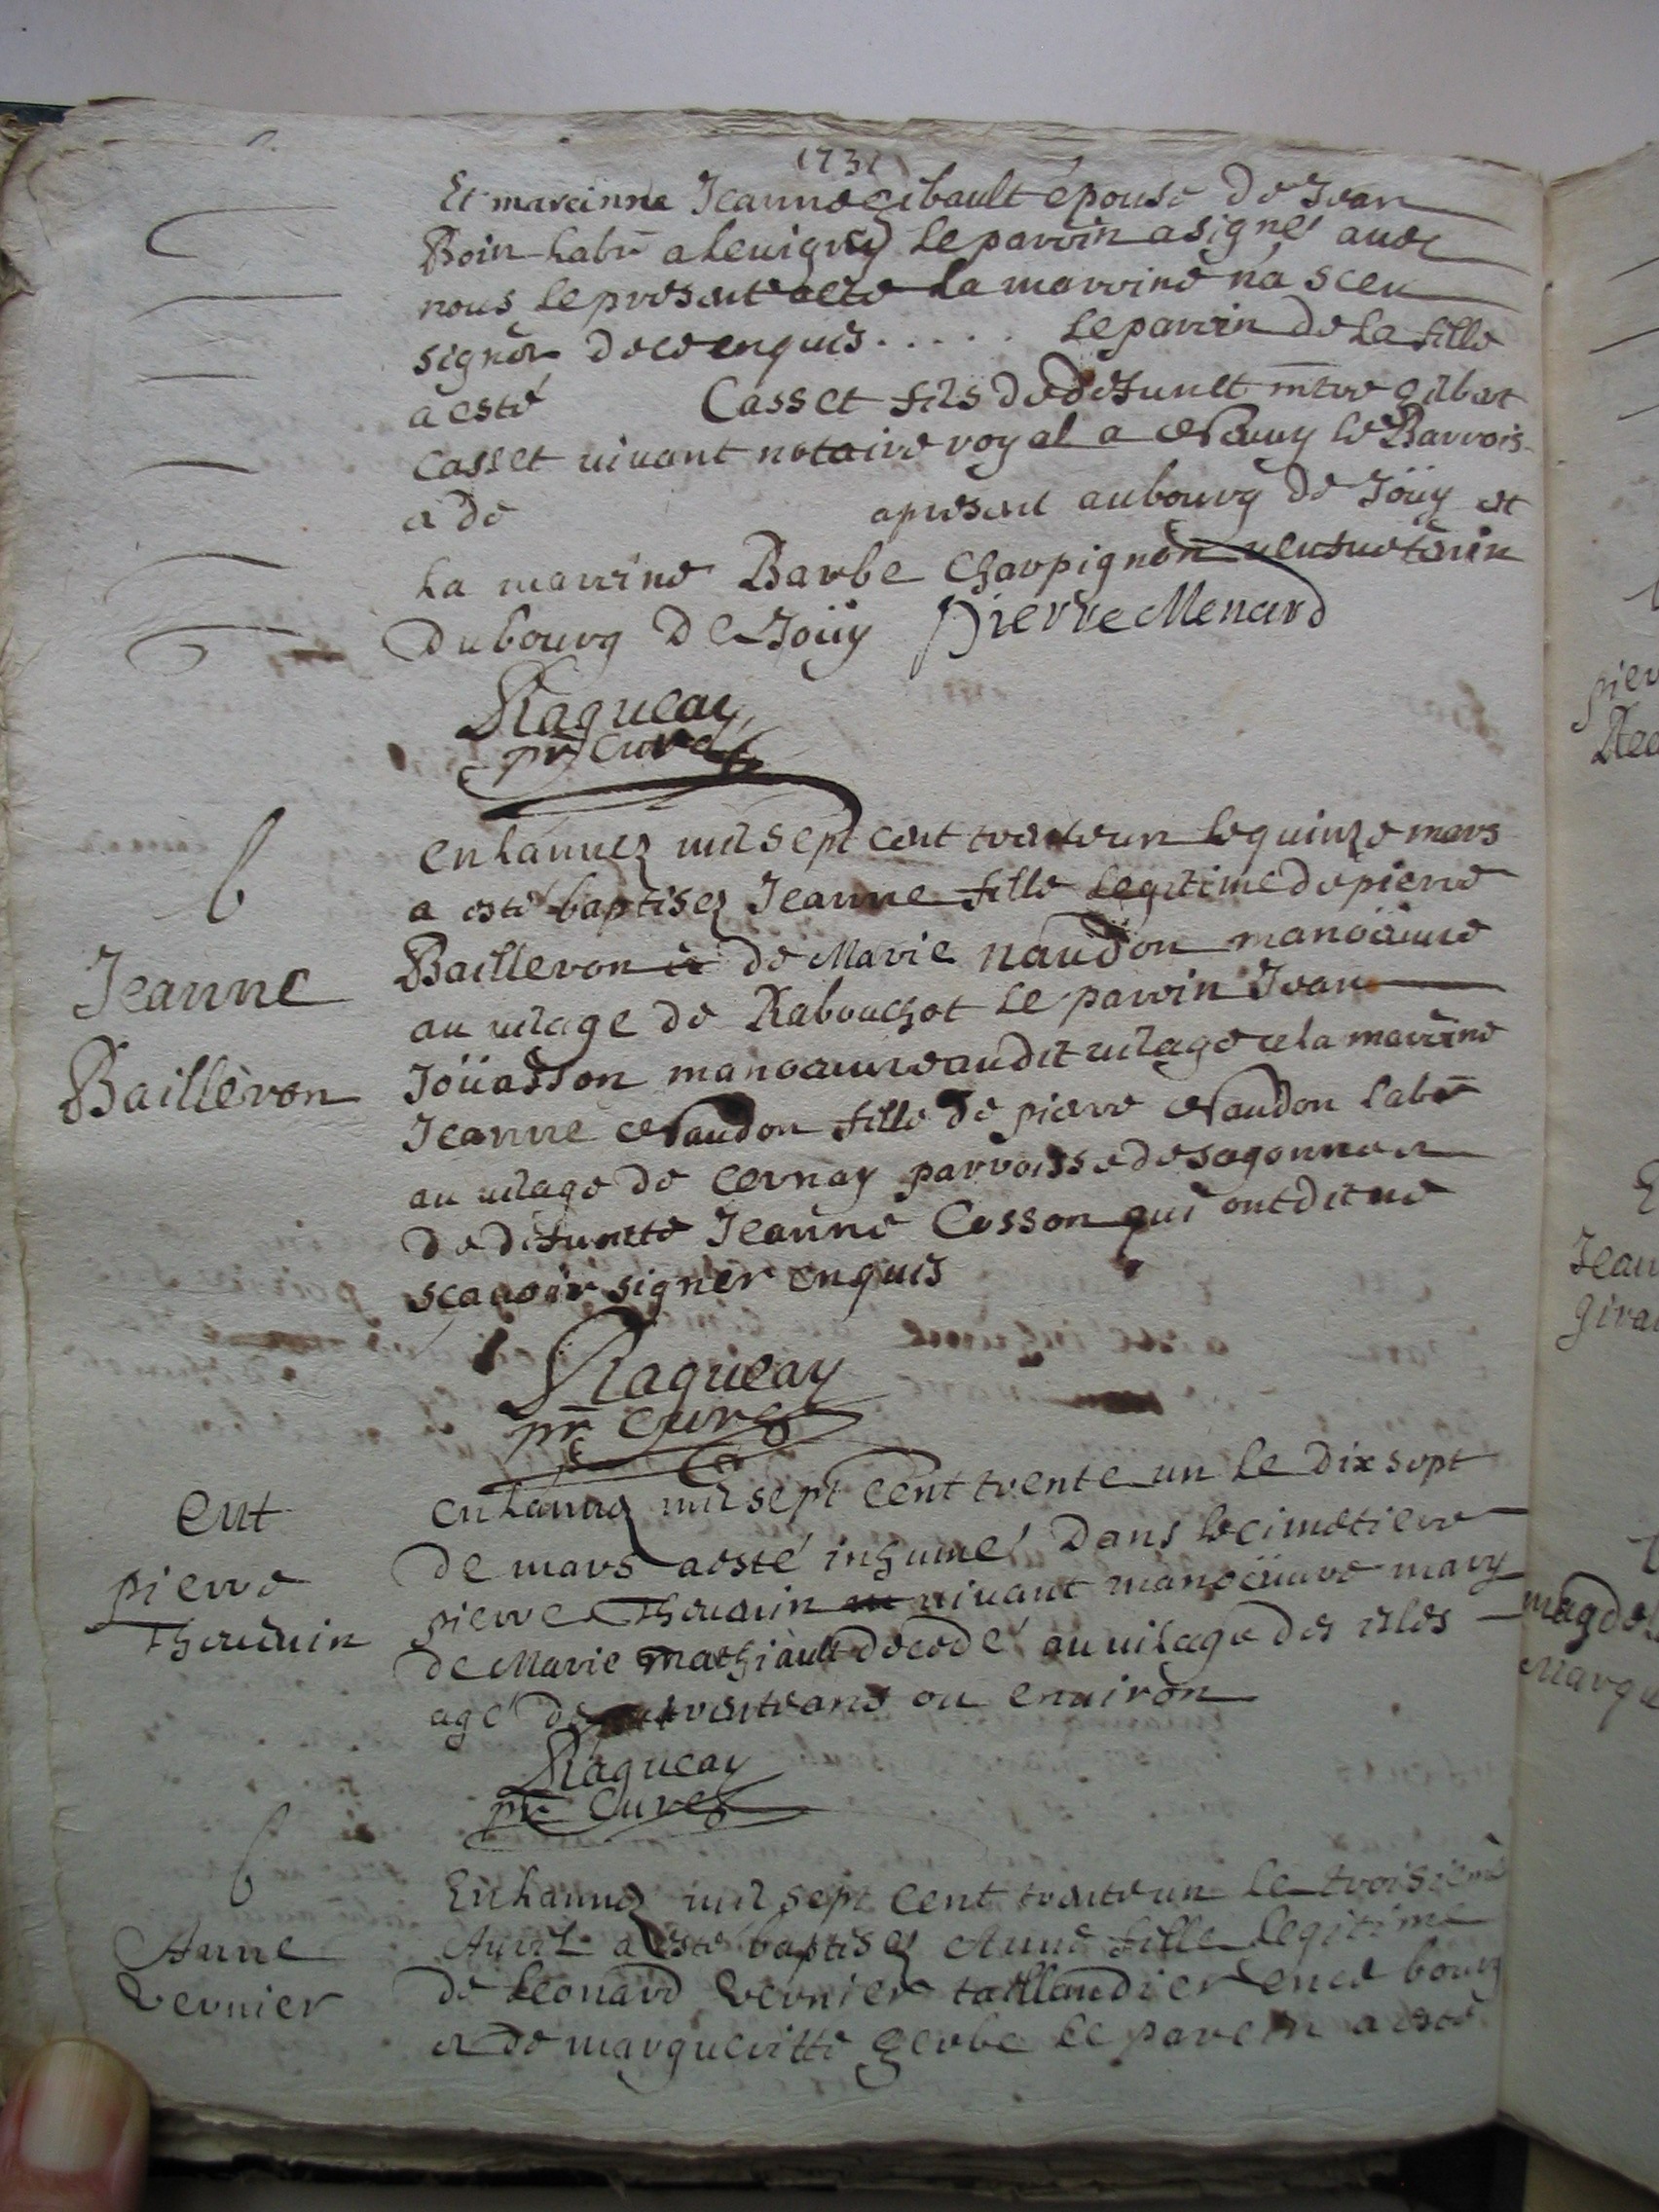 1731
Et mareinne Jeanne Gibault épouse de Jean
Boin labr a leuigny le parrin a signé auec
nous le present acte la marrine n'a sceu
signer de ce enquis..... le parrin de la fille
a esté Casset fils de defunct mtre Gilbert
Casset uiuant notaire royal a Neuuy le Barrois
et de apresent au bourg de Joüy et
la marrine Barbe Charpignon
du bourg de Joüy pierre Menard
Ragueay
pr curé
b
Jeanne
Bailleron
en l'année mil sept cent trente un le quinze mars
a esté baptisée Jeanne fille legitime de pierre
Bailleron et de Marie naudon manoeuure
au uilage de Rabouchot le parrin Jean
Joüasson manoeuure audit uilage et la marrine
Jeanne Naudon fille de pierre Naudon labr
au uilage de Cernay parroisse de sagonne et
de defuncte Jeanne Cosson qui ont dit ne
scauoir signer enquis
Ragueay
pr curé
ent
pierre
Theuenin
en l'année mil sept cent trente un le dix sept
de mars a esté inhumé dans le cimetiere
pierre Theuenin uiuant manoeuure mary
de Marie mathiault decedé au uilage des isles
agé de trente ans ou enuiron
Ragueay
pr curé
b
Anne
Vernier
En l'année mil sept cent trente un le troisieme
Auril a esté baptisée Anne fille legitime
de Leonard Vernier taillandier en ce bourg
et de margueritte gerbe le parein a esté
pier
Jean
magdel
Margue